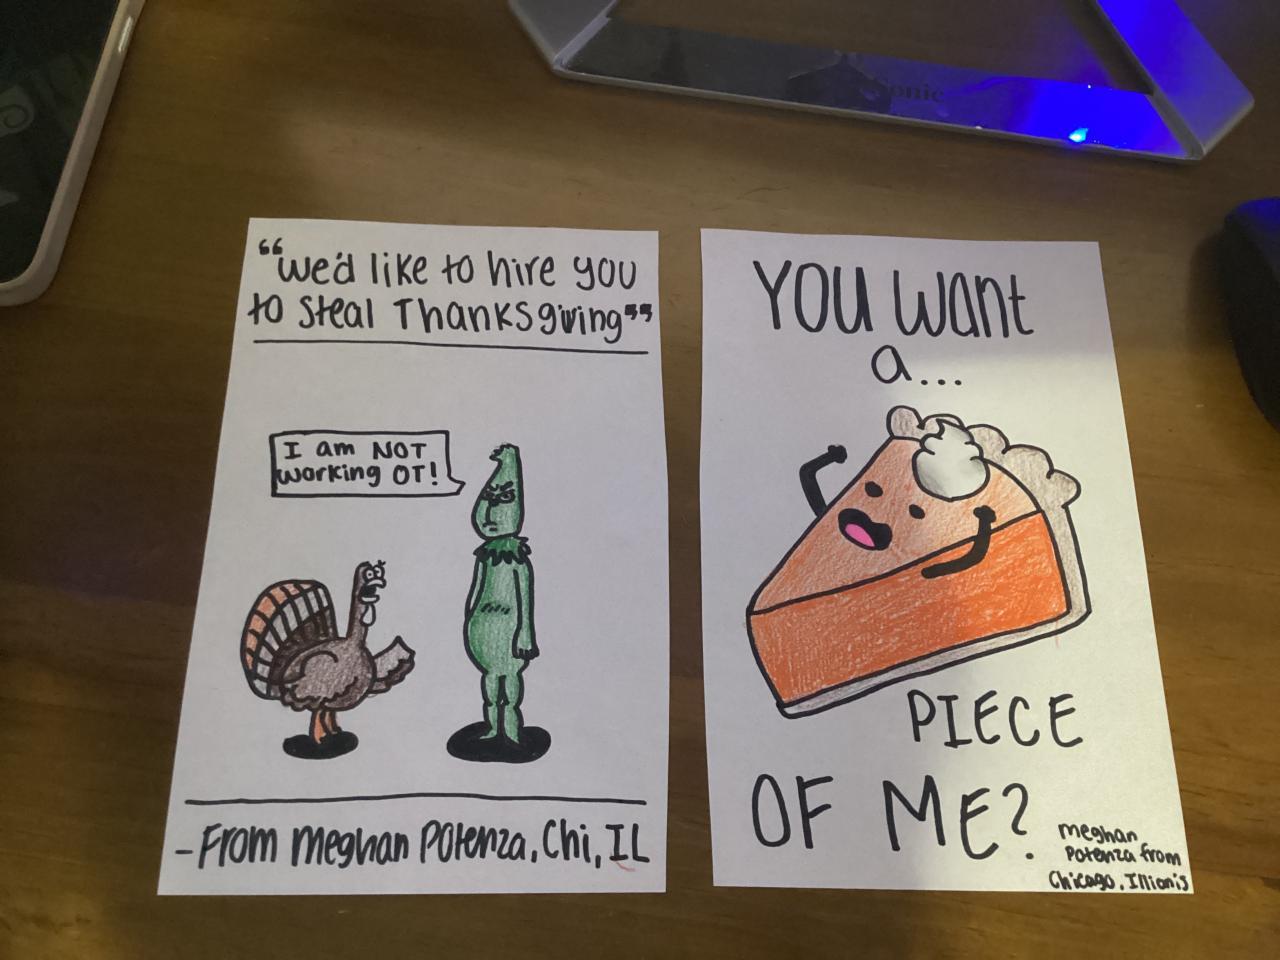 "We'd like to hire you
to steal Thanksgiving"
I am NOT
working OT!
-From Meghan Potenza, Chi, IL
YOU Want
a...
PIECE
OF ME?
Meghan
Potenza from
Chicago, Illionis